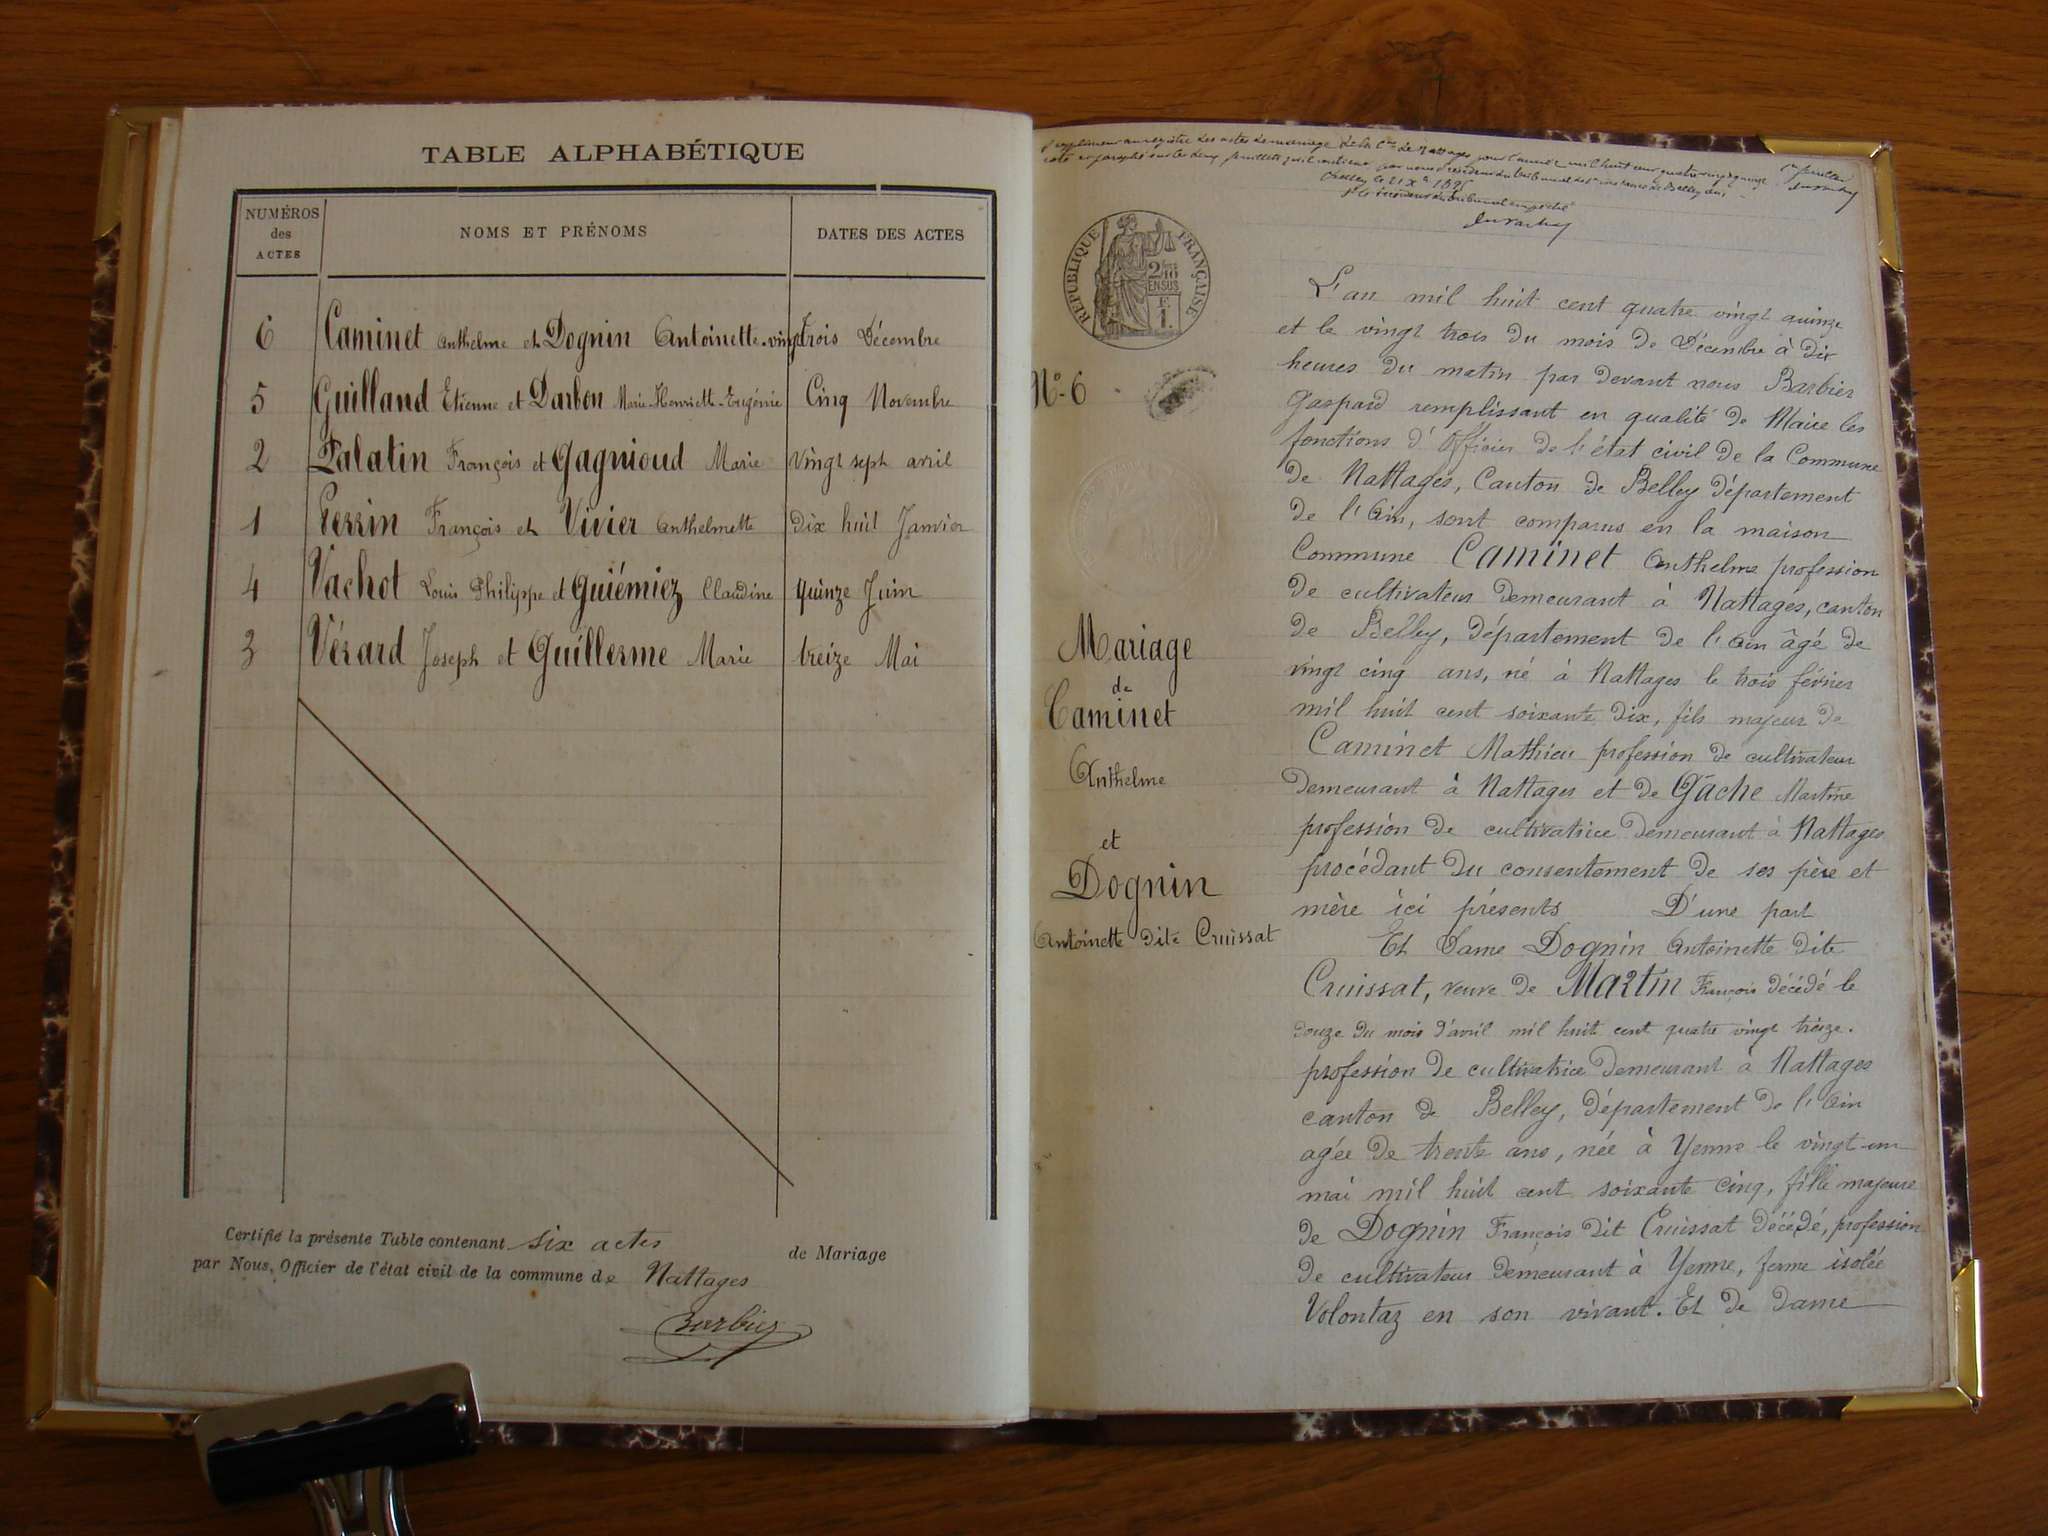 TABLE ALPHABÉTIQUE
NUMÉROS des ACTES
NOMS ET PRÉNOMS
DATES DES ACTES
6 Caminet Anthelme et Dognin Antoinette vingt trois Décembre
5 Guilland Etienne et Darbon Marie-Henriette-Eugénie Cinq Novembre
2 Palatin François et Gagnioud Marie vingt sept avril
1 Perrin François et Vivier Anthelmette Dix huit Janvier
4 Vachot Louis Philippe et Guiémiez Claudine quinze Juin
3 Vérard Joseph et Guillerme Marie treize Mai
Certifié la présente Table contenant six actes de Mariage
par Nous, Officier de l'état civil de la commune de Nattages
Barbier
Supplément au registre des actes de mariage de la Cne de Nattages pour l'année mil huit cent quatre vingt quinze
coté et paraphé sur les deux feuillets qu'il contient par nous Président du tribunal de Belley
le 21 Xbre 1895
RÉPUBLIQUE FRANÇAISE
2/10
EN SUS
F
1.
N° 6
Mariage
de
Caminet
Anthelme
et
Dognin
Antoinette dite Cruissat
L'an mil huit cent quatre vingt quinze
et le vingt trois du mois de Décembre à dix
heures du matin par devant nous Barbier
Gaspard remplissant en qualité de Maire les
fonctions d'Officier de l'état civil de la Commune
de Nattages, Canton de Belley Département
de l'Ain, sont comparus en la maison
Commune Caminet Anthelme profession
de cultivateur demeurant à Nattages, canton
de Belley, Département de l'Ain âgé de
vingt cinq ans, né à Nattages le trois février
mil huit cent soixante dix, fils majeur de
Caminet Mathieu profession de cultivateur
demeurant à Nattages et de Gache Martine
profession de cultivatrice demeurant à Nattages
procédant du consentement de ses père et
mère ici présents D'une part
Et Dame Dognin Antoinette dite
Cruissat, veuve de Martin François décédé le
douze du mois d'avril mil huit cent quatre vingt treize.
profession de cultivatrice demeurant à Nattages
canton de Belley, Département de l'Ain
agée de trente ans, née à Yenne le vingt-un
mai mil huit cent soixante cinq, fille majeure
de Dognin François dit Cruissat décédé, profession
de cultivateur demeurant à Yenne, ferme isolée
Volontaz en son vivant. Et de dame